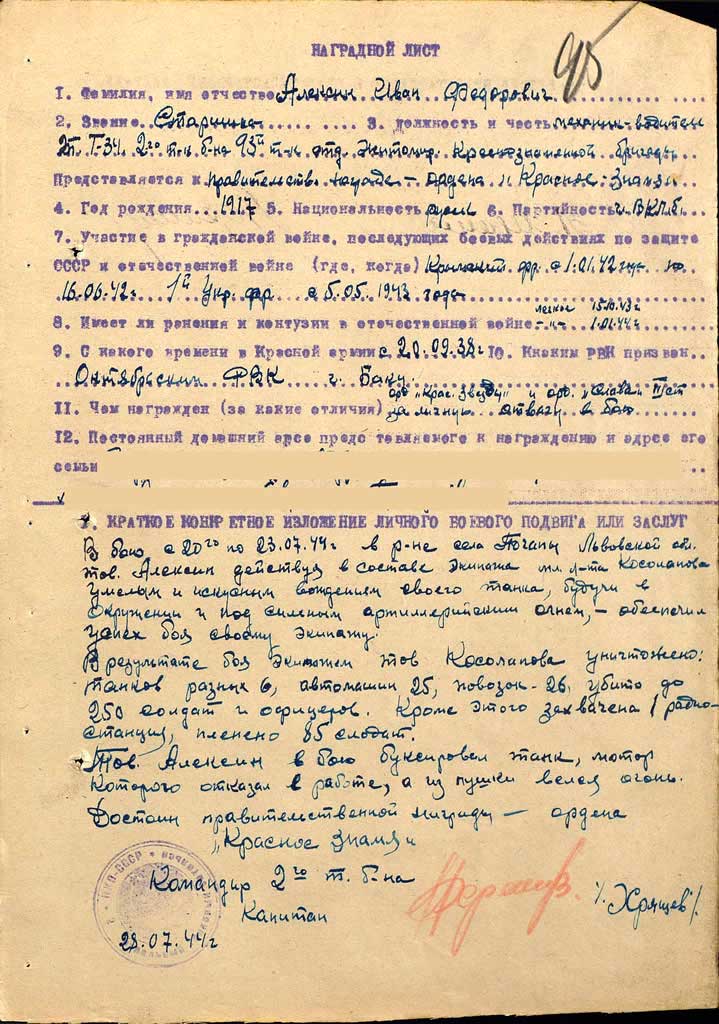 95
НАГРАДНОЙ ЛИСТ
1. Фамилия, имя отчество Алексин Иван Федорович
2. Звание Старшина 3. должность и часть механик-водитель
Т-34 2го т-к б-на 93й т-к отд. Житомир. Краснознаменной бригады
Представляется к правительств. награде – ордена „Красное Знамя
4. Год рождения 1917 5. Национальность русск 6. Партийность ВКП/б.
7. Участие в гражданской войне, последующих боевых действиях по защите
СССР и отечественной войне (где, когда) Крымский фр. с 1.01.42 года по
16.06.42г. 1й Укр. фр. с 5.05.1943 года
8. Имеет ли ранения и контузии в отечественной войне легкое 15.10.43г
-"- 1.01.44г
9. С какого времени в Красной армии с 20.09.38г 10. Каким РВК призван
Октябрьским РВК г. Баку
11. Чем награжден (за какие отличия) орд „Крас. Звезду" и орд. „Слава" III ст
за личную отвагу в бою
12. Постоянный домашний адрес представляемого к награждению и адрес его
семьи
1. КРАТКОЕ КОНКРЕТНОЕ ИЗЛОЖЕНИЕ ЛИЧНОГО БОЕВОГО ПОДВИГА ИЛИ ЗАСЛУГ
В бою с 20го по 23.07.44г в р-не села Почапы Львовской обл.
тов. Алексин действуя в составе экипажа мл. л-та Косолапова
умелом и искусным вождением своего танка, будучи в
окружении и под сильным артиллерийским огнем, – обеспечил
успех боя своему экипажу.
В результате боя экипажем тов Косолапова уничтожено:
танков разных 6, автомашин 25, повозок-26, убито до
250 солдат и офицеров. Кроме этого захвачена 1 радио-
станция, пленено 85 солдат.
Тов. Алексин в бою буксировал танк, мотор
которого отказал в работе, а из пушки велся огонь.
Достоин правительственной награды – ордена
„Красное Знамя"
Командир 2го т. б-на
Капитан /Хрящев/.
28.07.44г
НКО-СССР